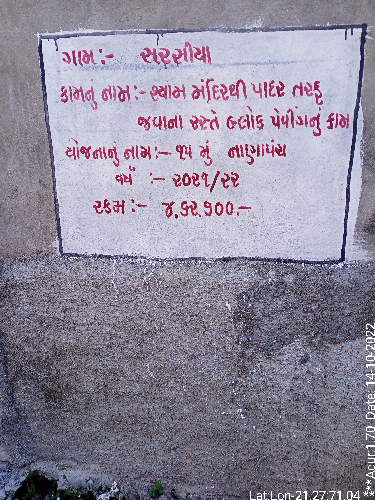 ગામ:- સરસીયા
કામનુ નામ:- શ્યામ મંદિરથી પાદર તરફ
જવાના રસ્તે બ્લોક પેવીંગનું કામ
યોજનાનું નામ:- ૧૫ મું નાણાપંચ
વર્ષ :- ૨૦૨૧/૨૨
રકમ:- ૪,૬૨,૧૦૦.-
Lat:Lon-21.27:71.04**
***Acur:1.70 Date: 14-10-2022